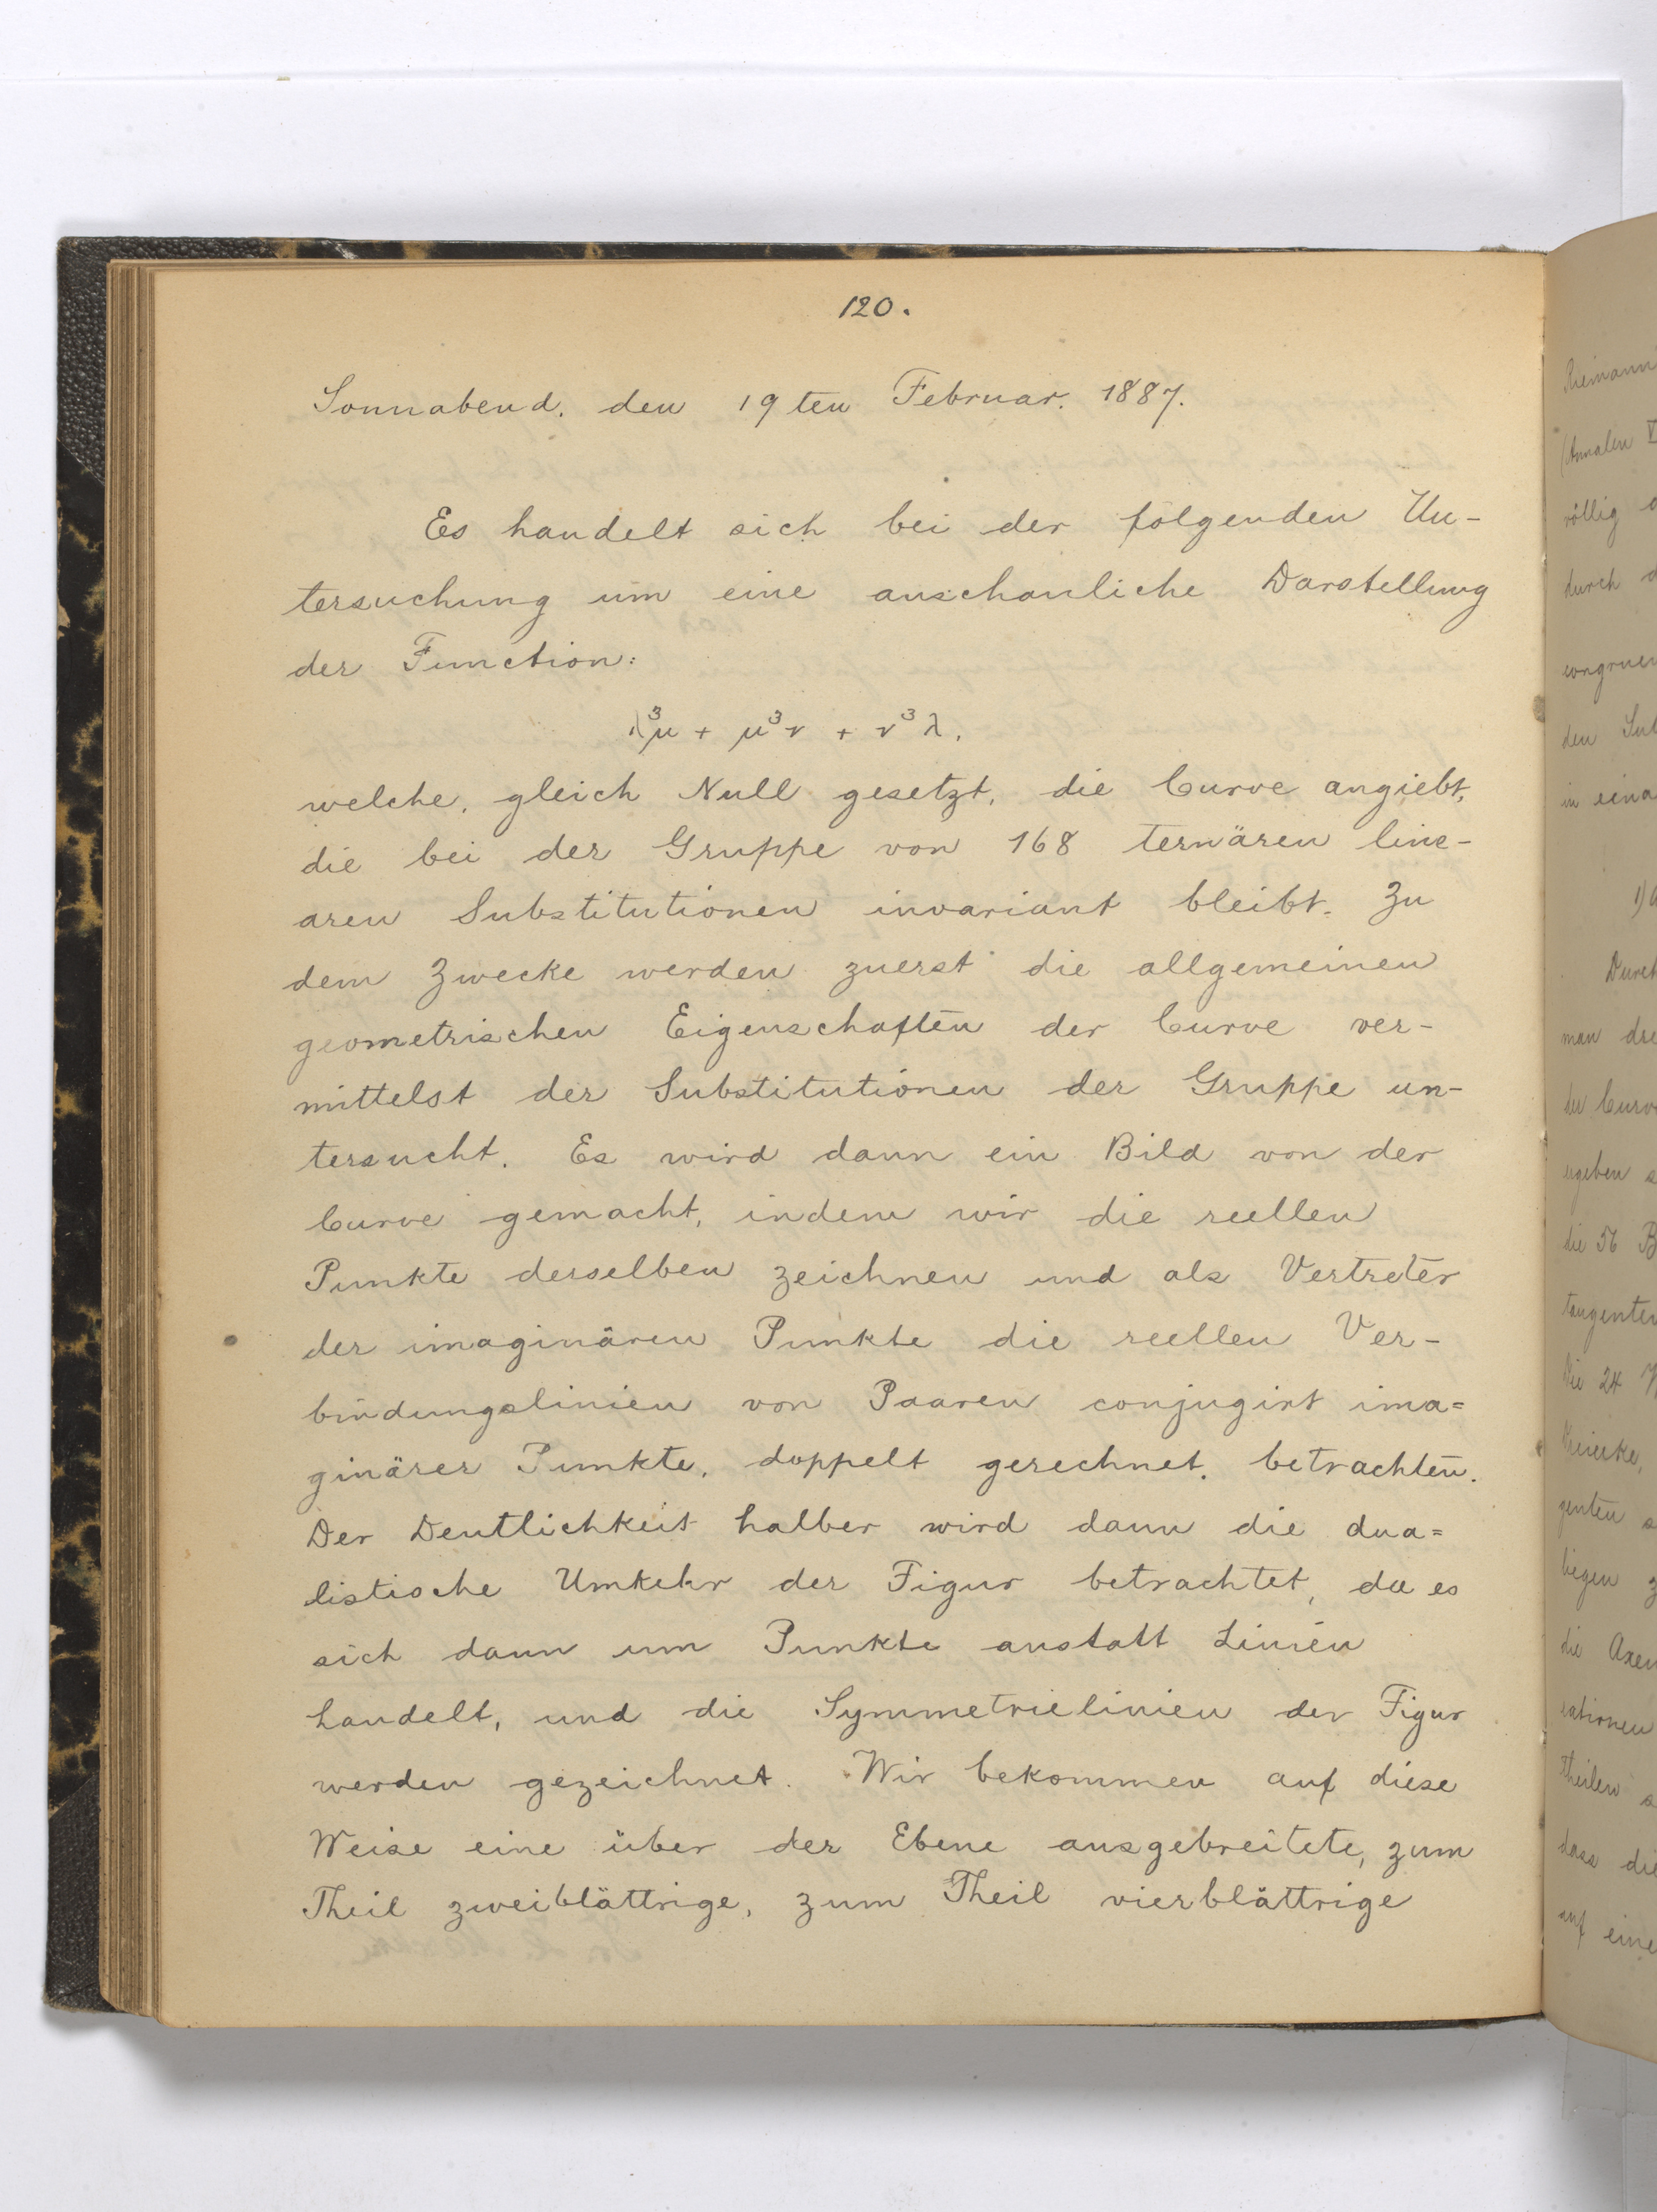 120.
Sonnabend, den 19ten Februar. 1887.
Es handelt sich bei der folgenden Un-
tersuchung um eine anschauliche Darstellung
der Function:
λ³μ + μ³ν + ν³λ,
welche, gleich Null gesetzt, die Curve angiebt,
die bei der Gruppe von 168 ternären line-
aren Substitutionen invariant bleibt. Zu
dem Zwecke werden zuerst die allgemeinen
geometrischen Eigenschaften der Curve ver-
mittelst der Substitutionen der Gruppe un-
tersucht. Es wird dann ein Bild von der
Curve gemacht, indem wir die reellen
Punkte derselben zeichnen und als Vertreter
der imaginären Punkte die reellen Ver-
bindungslinien von Paaren conjugirt ima=
ginärer Punkte, doppelt gerechnet, betrachten.
Der Deutlichkeit halber wird dann die dua=
listische Umkehr der Figur betrachtet, da es
sich dann um Punkte anstatt Linien
handelt, und die Symmetrielinien der Figur
werden gezeichnet. Wir bekommen auf diese
Weise eine über der Ebene ausgebreitete, zum
Theil zweiblättrige, zum Theil vierblättrige
Riemann
(Annalen
völlig
durch
den
in eina
1)
Durch
man
der Curv
ergeben
die 56 B
tangenten
Die 24
genten
liegen
die Axen
Theilen
dass die
auf eine